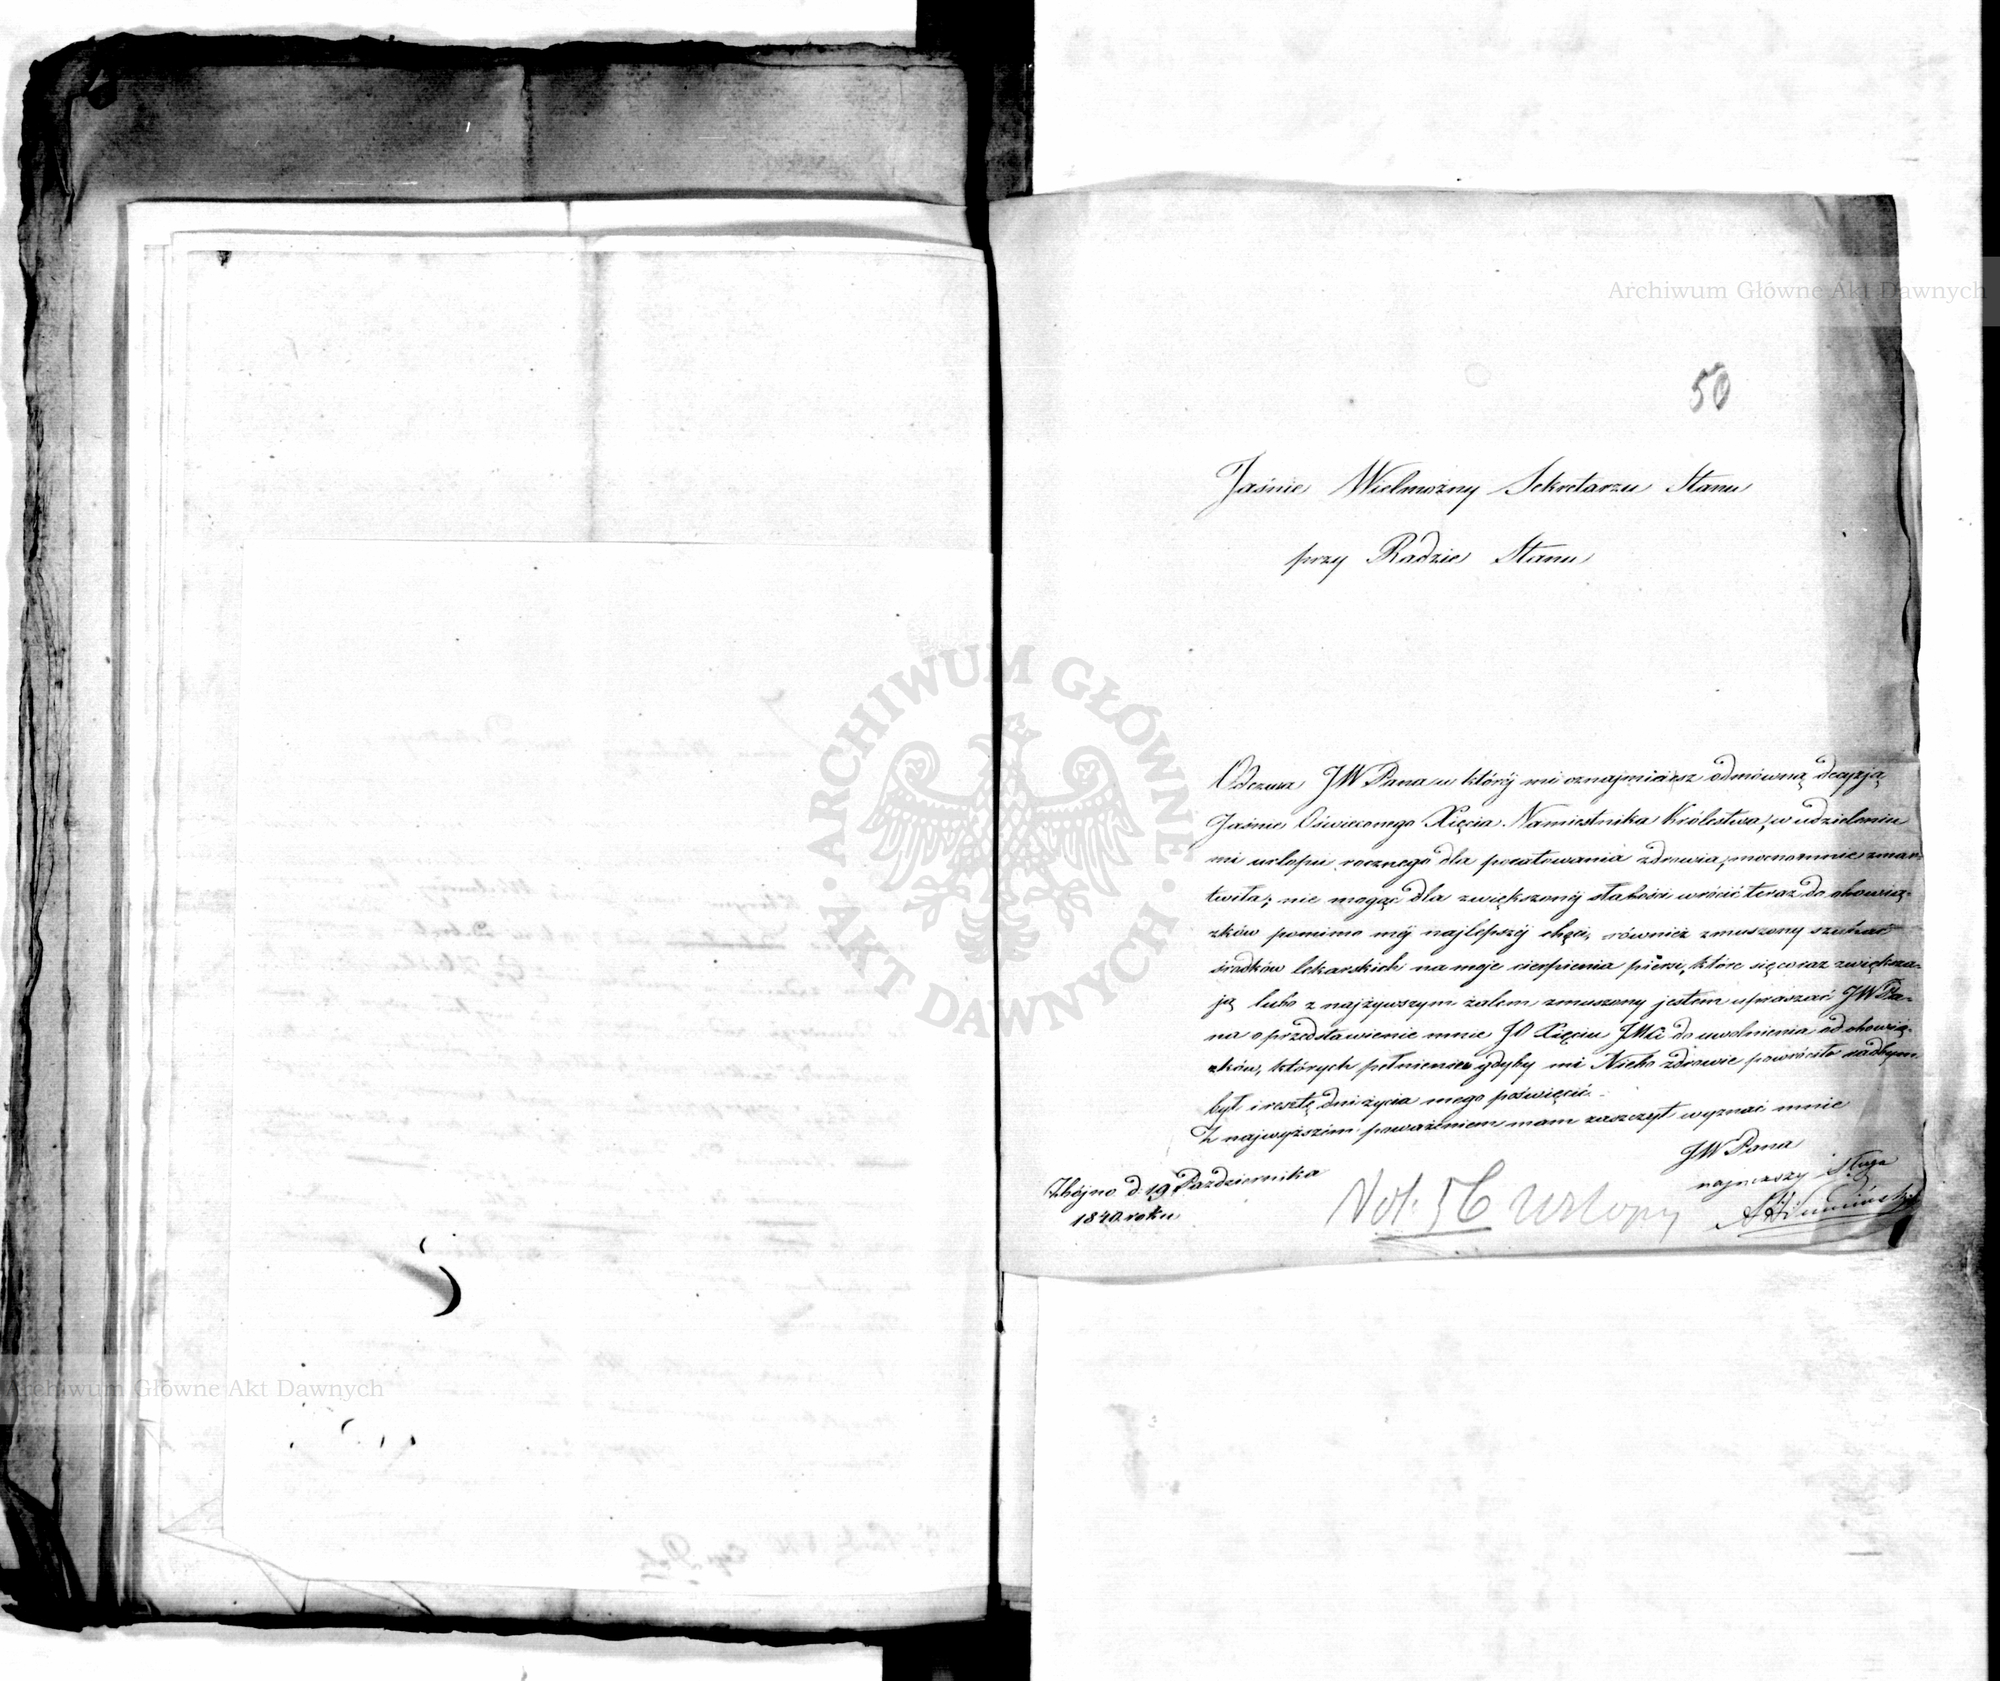 50
Jaśnie Wielmożny Sekretarzu Stanu
przy Radzie Stanu
Odezwa JW Pana w którój mi oznajmiasz odmówną decyzją
Jaśnie Oświeconego Xięcia Namiestnika Królestwa, w udzieleniu
mi urlopu rocznego dla poratowania zdrowia, mocno mnie zmar-
twiła; nie mogąc dla zwiększonéj słabości wrócić teraz do obowią-
zków pomimo méj najlepszéj chęci, również zmuszony szukać
środków lekarskich na moje cierpienia piersi, które się coraz zwiększa-
ją lubo z najżywszym żalem zmuszony jestem upraszać JW Pa-
na o przedstawienie mnie JO Xięciu JMci do uwolnienia od obowią-
zków, których pełnieniu gdyby mi Niebo zdrowie powróciło radbym
był i resztę dni życia mego poświęcić.
Z najwyższém poważaniem mam zaszczyt wyznać mnie
JW Pana
najniższy sługa
Zbójno d. 19 Października
1840. roku
Vol. 56 Urlopy
Archiwum Główne Akt Dawnych
Archiwum Główne Akt Dawnych
ARCHIWUM GŁÓWNE AKT DAWNYCH